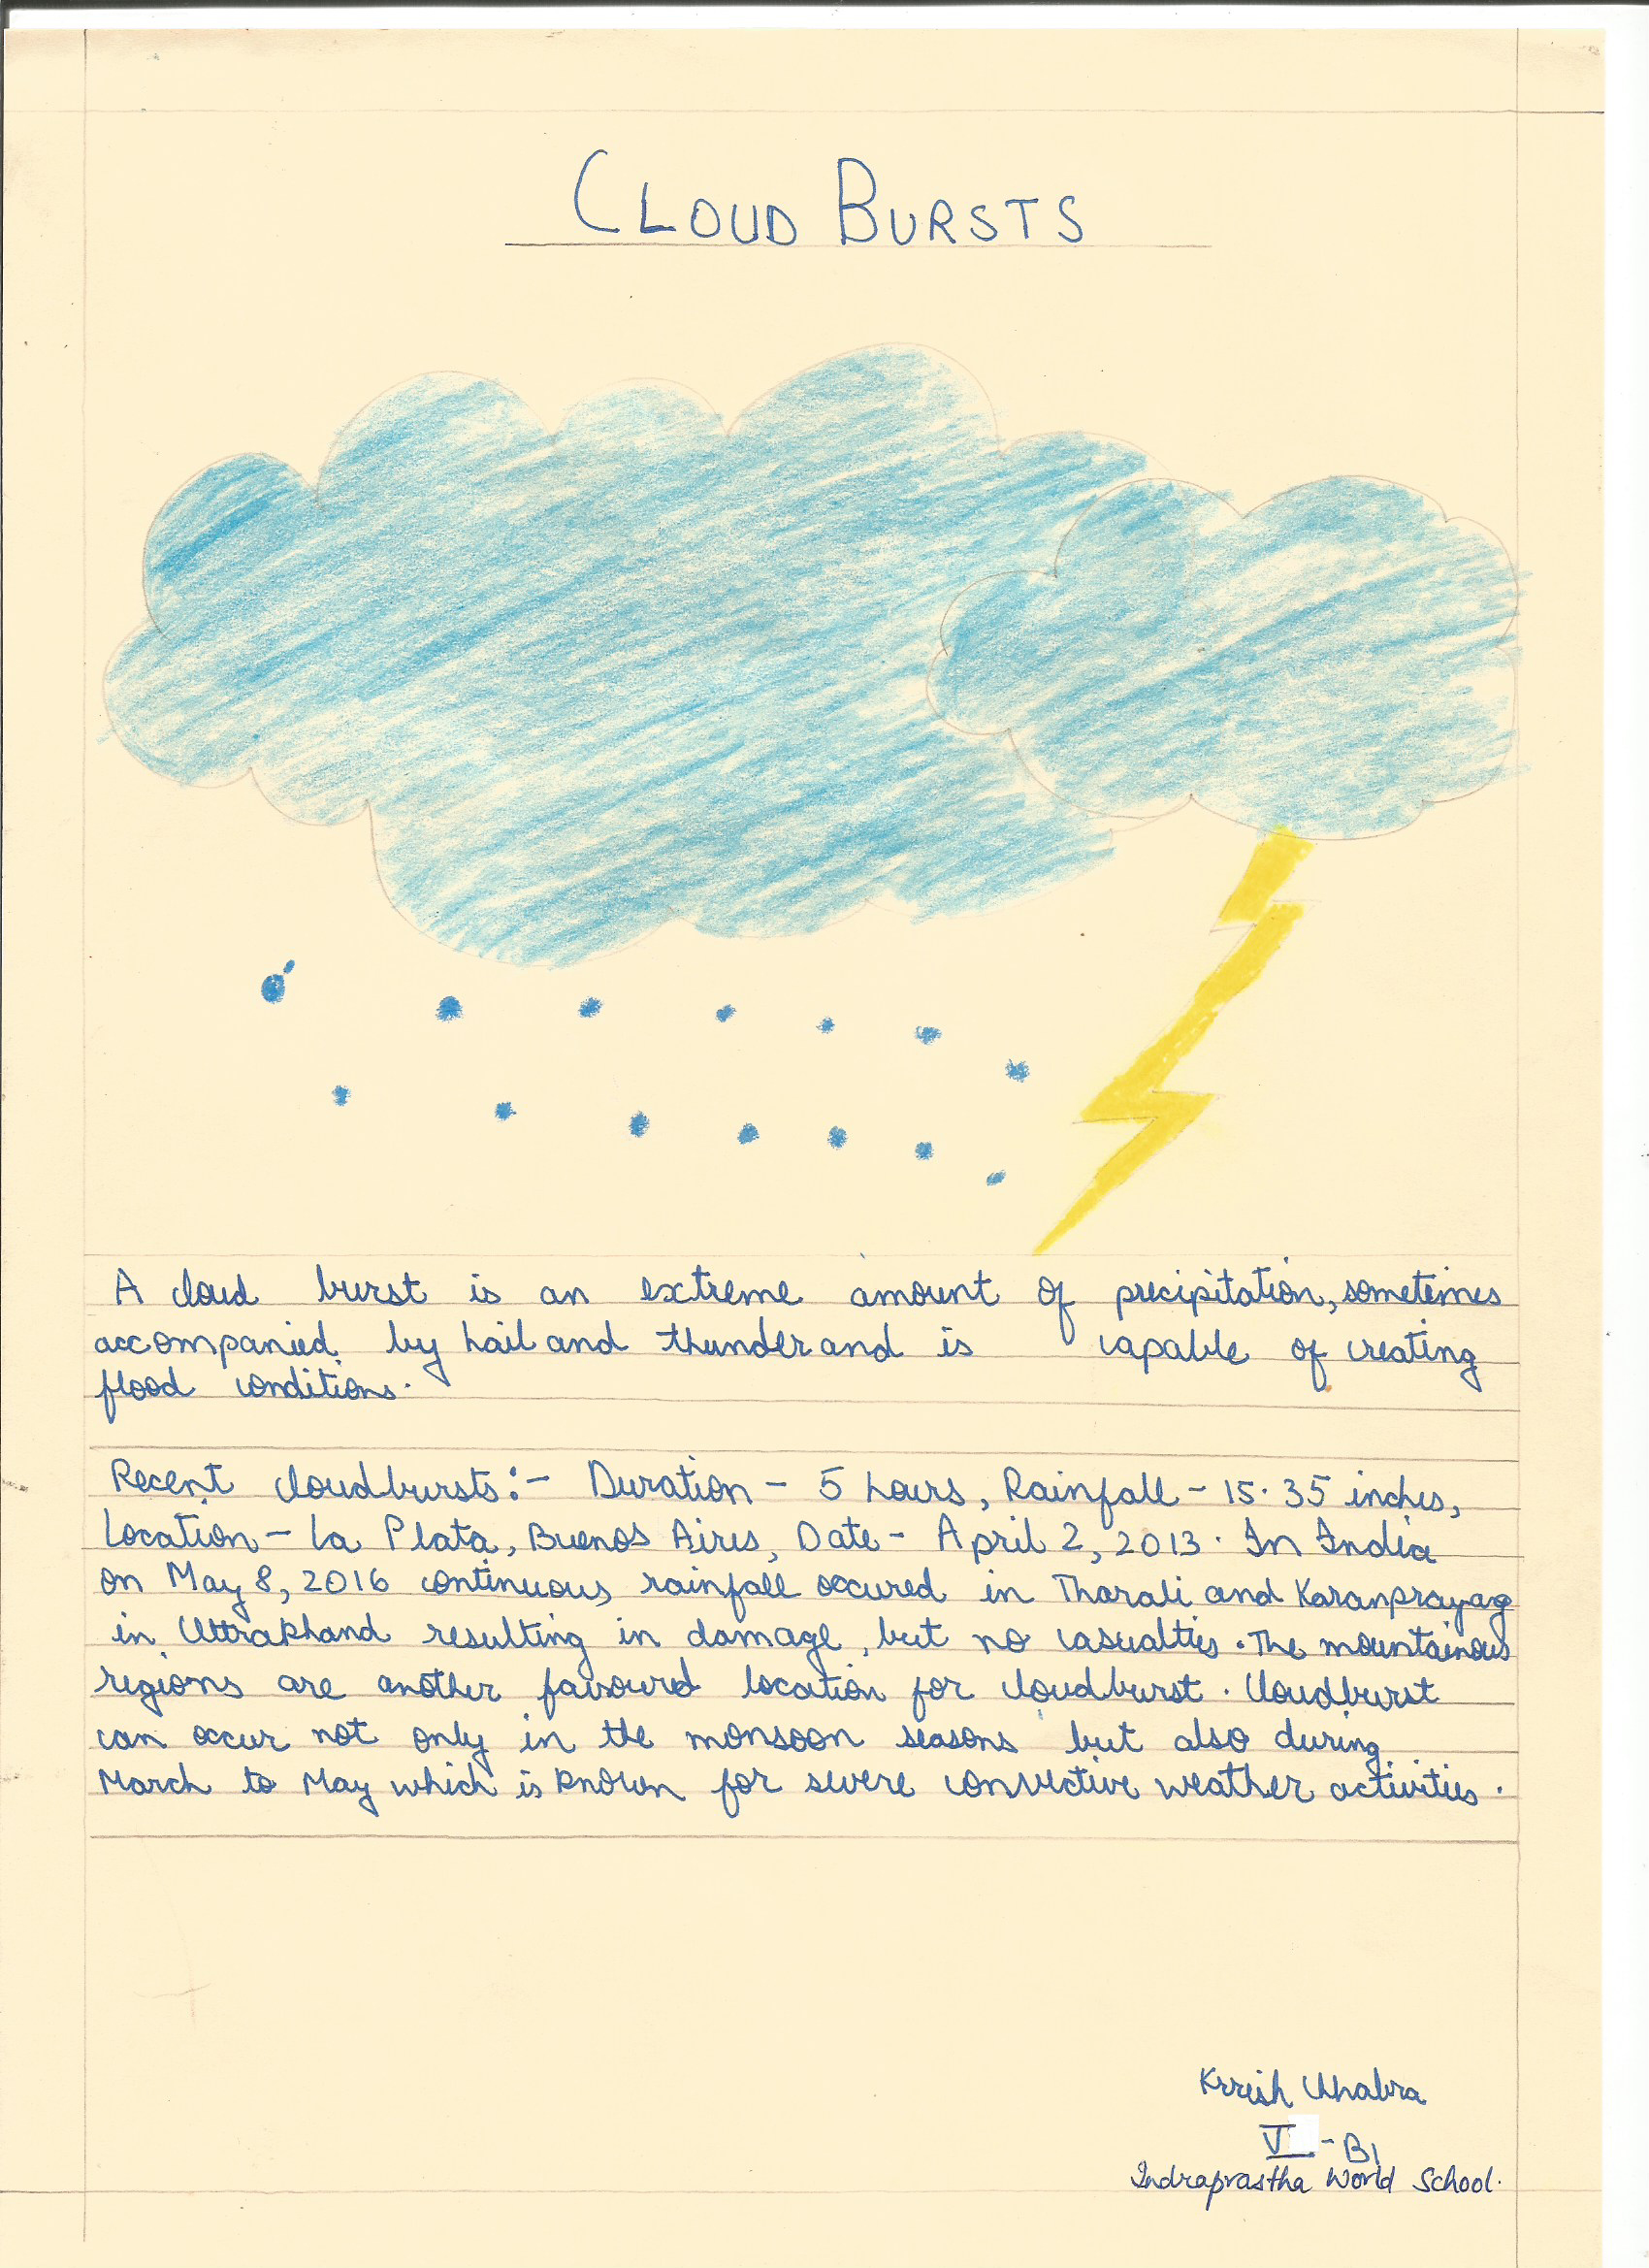 CLOUD BURSTS
A cloud burst is an extreme amount of precipitation, sometimes
accompanied by hail and thunder and is capable of creating
flood conditions.
Recent cloudbursts:- Duration - 5 hours, Rainfall - 15.35 inches,
Location - La Plata, Buenos Aires, Date - April 2, 2013. In India
on May 8, 2016 continuous rainfall occured in Tharali and Karanprayag
in Uttrakhand resulting in damage, but no casualties. The mountainous
regions are another favoured location for cloudburst. Cloudburst
can occur not only in the monsoon seasons but also during
March to May which is known for severe convective weather activities.
Krrish Chhabra
-B1
Indraprastha World School.